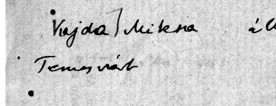 Vajda / Miksa
Temesvárt